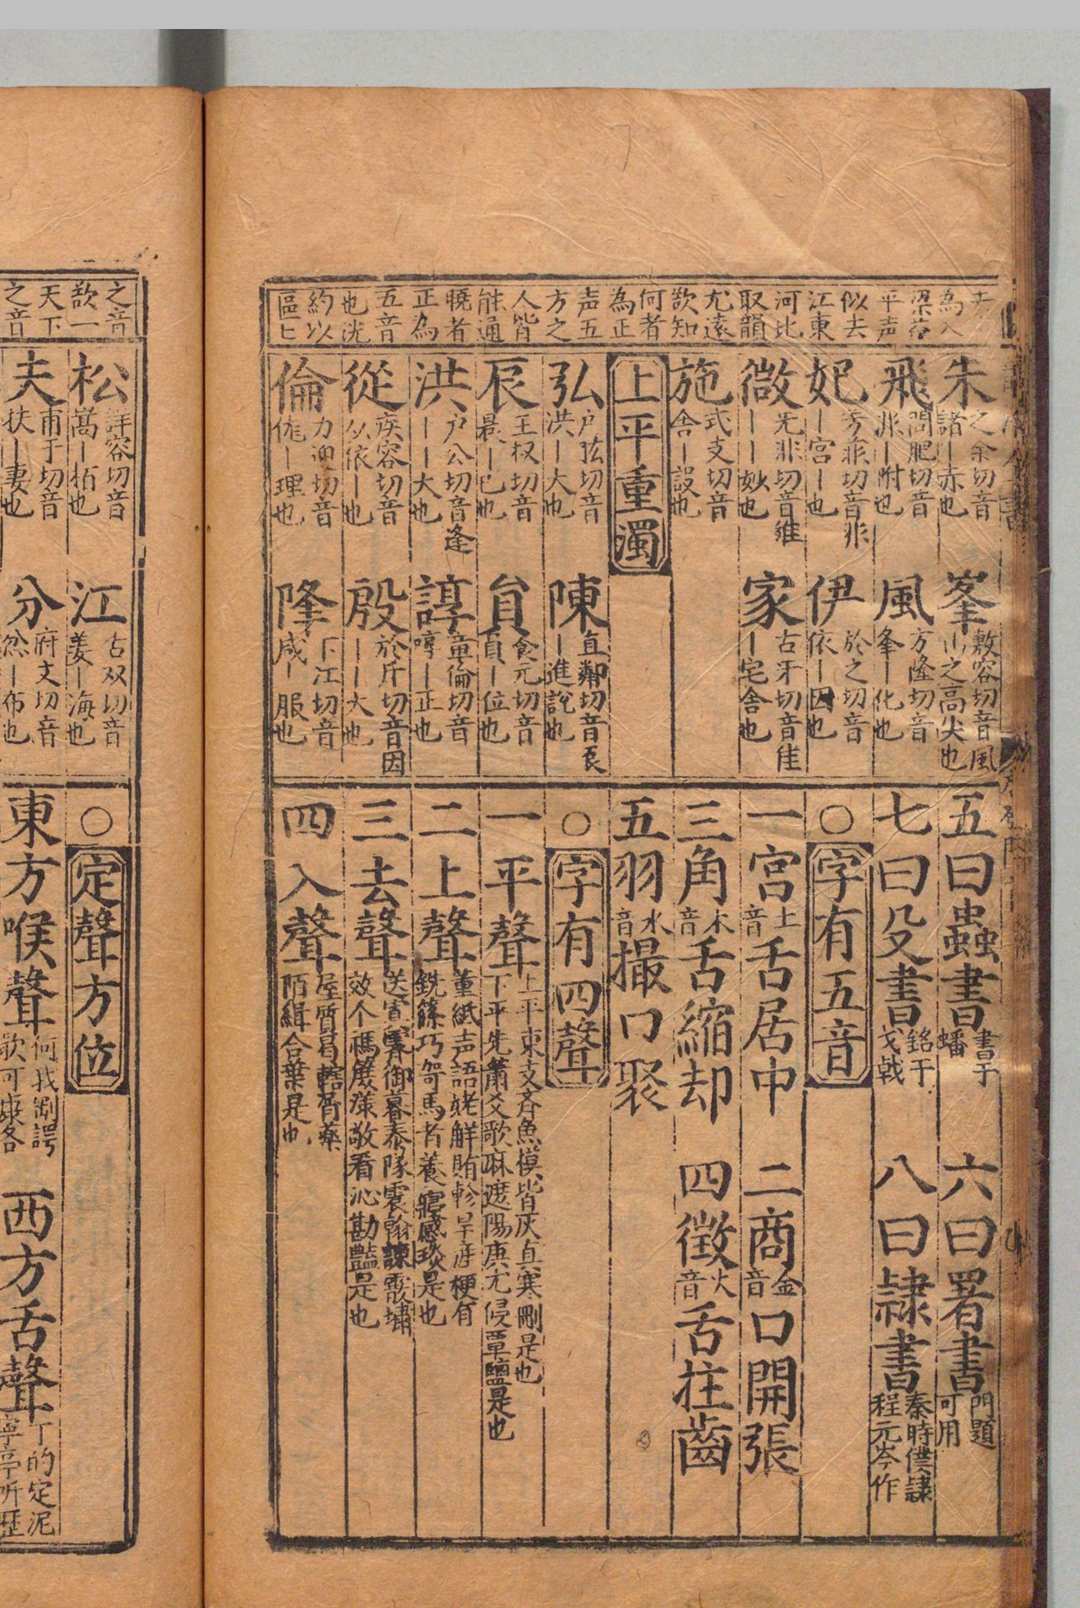 為入
梁益
平声
似去
江東
河比
取韻
尤遠
欲知
何者
為正
声五
方之
人皆
能通
曉者
正為
五音
也洸
約以
區匕
朱 之余切音諸丨赤也
峯 敷容切音風山之高尖也
飛 間肥切音非丨附也
風 方隆切音夆丨化也
妃 芳非切音非丨宫也
伊 於之切音依丨因也
微 无非切音維丨丨妙也
家 古牙切音佳丨宅舍也
施 式支切音舍丨設也
上平重濁
弘 户弦切音洪丨大也
陳 直鄰切音辰丨進說也
辰 王权切音晨丨已也
貟 食元切音負丨位也
洪 户公切音逢丨丨大也
諄 章倫切音啍丨正也
從 疾容切音从依丨也
殷 於斤切音因丨丨大也
倫 力迍切音倠丨理也
隆 下江切音咸丨服也
五曰蟲書 書于蟠
六曰署書 門題可用
七曰殳書 銘于戈戟
八曰隷書 秦時僕隷程元岑作
○字有五音
一宮 土音 舌居中
二商 金音 口開張
三角 木音 舌縮却
四徵 火音 舌拄齒
五羽 水音 撮口聚
○字有四聲
一平聲 上平東支齊魚模皆灰真寒刪是也下平先蕭爻歌麻遮陽庚尤侵覃鹽是也
二上聲 董紙語姥解賄軫旱産銑篠巧哿馬者養梗有寑感琰是也
三去聲 送寘霽御暮泰隊震翰諫霰嘯效个禡漾敬看沁勘豔是也
四入聲 屋質曷轄屑藥陌緝合葉是也
之音
歆一
天下
之音
松 詳容切音嵩丨栢也
江 古双切音姜丨海也
夫 甫于切音扶丨妻也
分 府文切音丨布也
○定聲方位
東方喉聲 何我剛諤歌可康各
西方舌聲 丁的定泥寧亭听歷